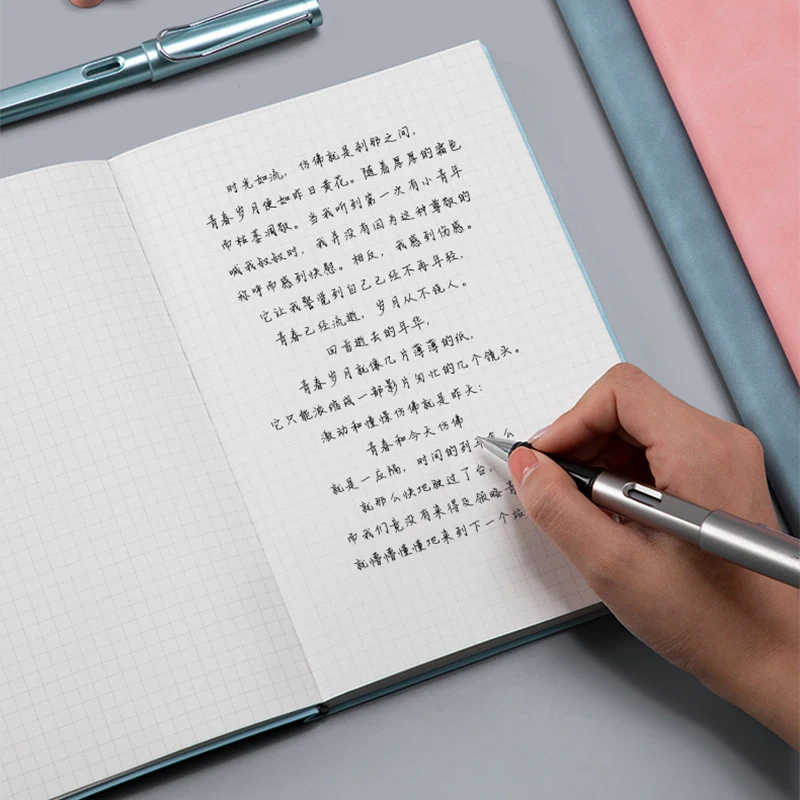 时光如流，仿佛就是刹那之间，
青春岁月便如昨日黄花。随着厚厚的霜色
而枯萎凋敝。当我听到第一次有小青年
喊我叔叔时，我并没有因为这种尊敬的
称呼而感到快慰。相反，我感到伤感。
它让我警觉到自己已经不再年轻，
青春已经流逝，岁月从不饶人。
回首逝去的年华，
青春岁月就像几片薄薄的纸，
它只能浓缩成一部影片匆忙的几个镜头。
激动和憧憬仿佛就是昨天；
青春和今天仿佛
就是一反隔，时间的列车怎么
就那么快地驶过了台，
而我们竟没有来得及领略青
就懵懵懂懂地来到下一个站